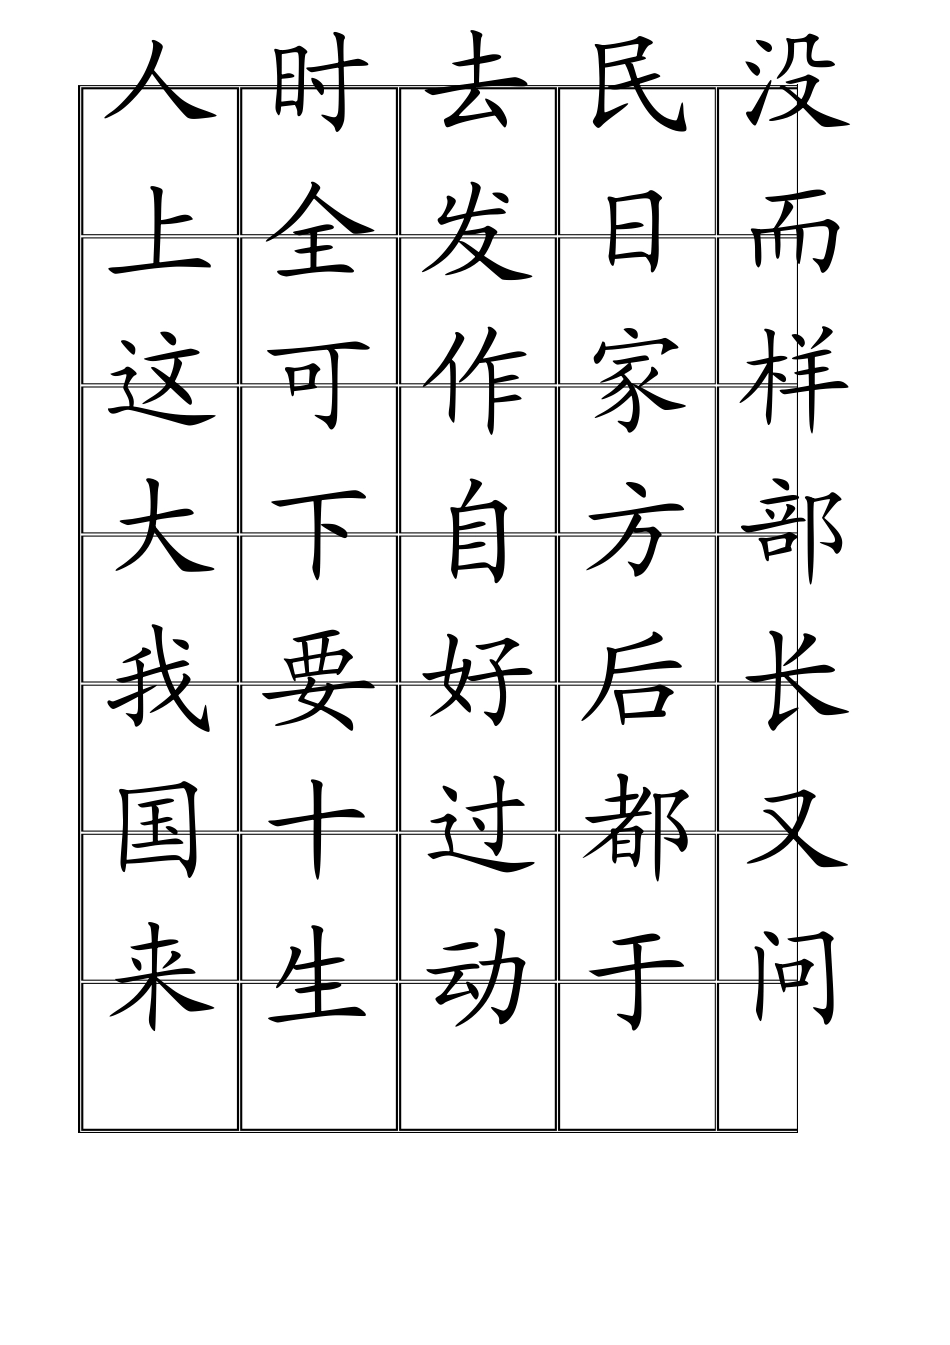 人 时 去 民 没
上 全 发 日 而
这 可 作 家 样
大 下 自 方 部
我 要 好 后 长
国 十 过 都 又
来 生 动 于 问